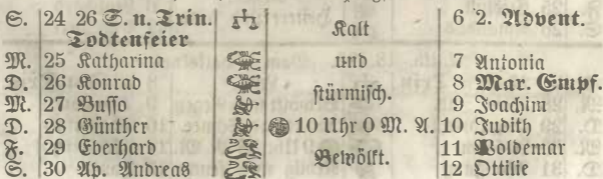 S. 24 26 S. n. Trin. Kalt 6 2. Advent.
Todtenfeier
M. 25 Katharina und 7 Antonia
D. 26 Konrad stürmisch. 8 Mar. Empf.
M. 27 Busso 9 Joachim
D. 28 Günther 10 Uhr 0 M. A. 10 Judith
F. 29 Eberhard Bewölkt. 11 Woldemar
S. 30 Ap. Andreas 12 Ottilie